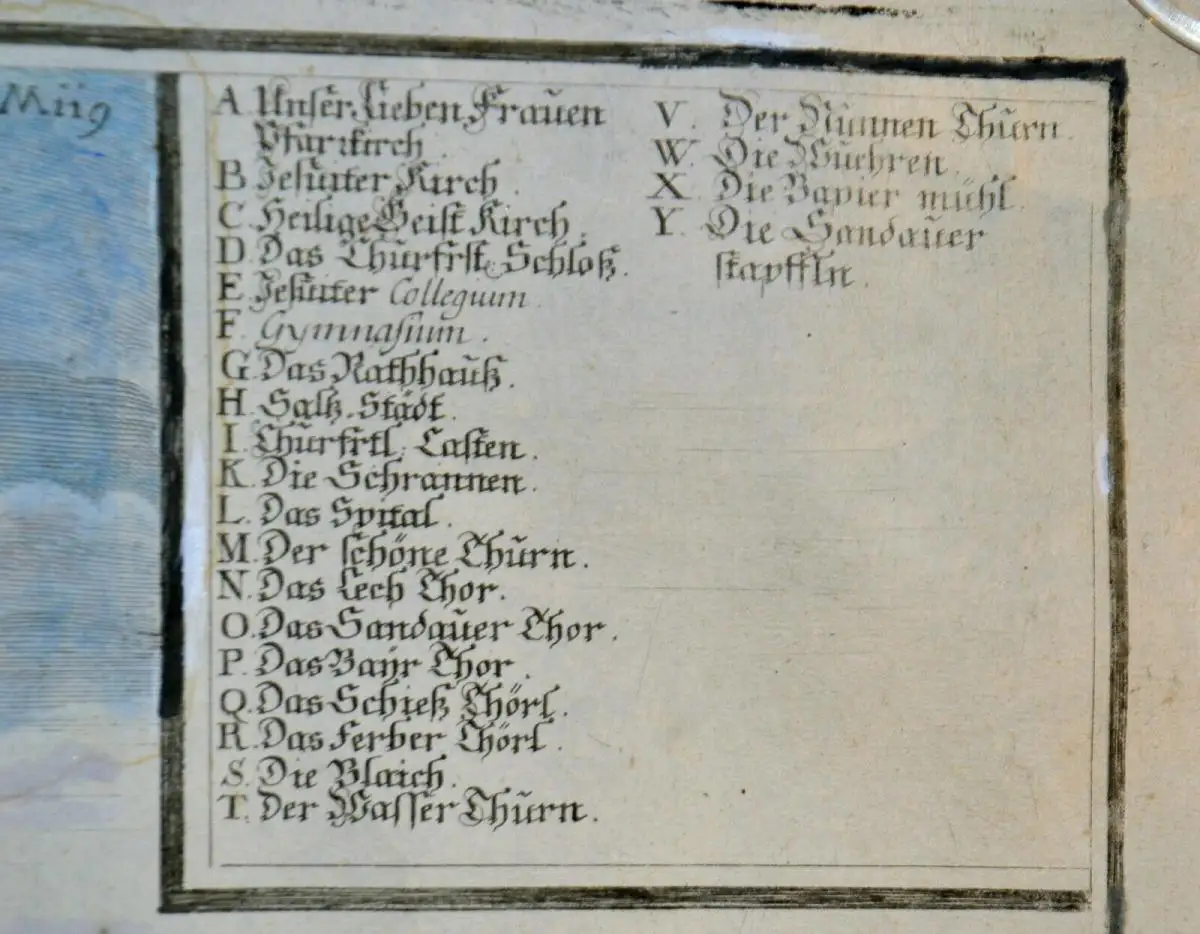 Müg
A Unser Lieben Frauen
Pfarrkirch
B Jesuiter Kirch.
C Heilige Geist Kirch.
D. Das Churfrstl. Schloß.
E Jesuiter Collegium.
F. Gymnasium.
G. Das Rathhauß.
H. Saltz-Städt.
I. Churfrtl. Casten.
K. Die Schrannen.
L. Das Spital.
M. Der schöne Thurn.
N. Das Lech Thor.
O. Das Sandauer Thor.
P. Das Bayr Thor.
Q. Das Schieß Thörl.
R. Das Ferber Thörl.
S. Die Blaich.
T. Der Wasser Thurn.
V. Der Nunnen Thurn.
W. Die Wuehren.
X. Die Bapier mühl.
Y. Die Sandauer
stapffln.